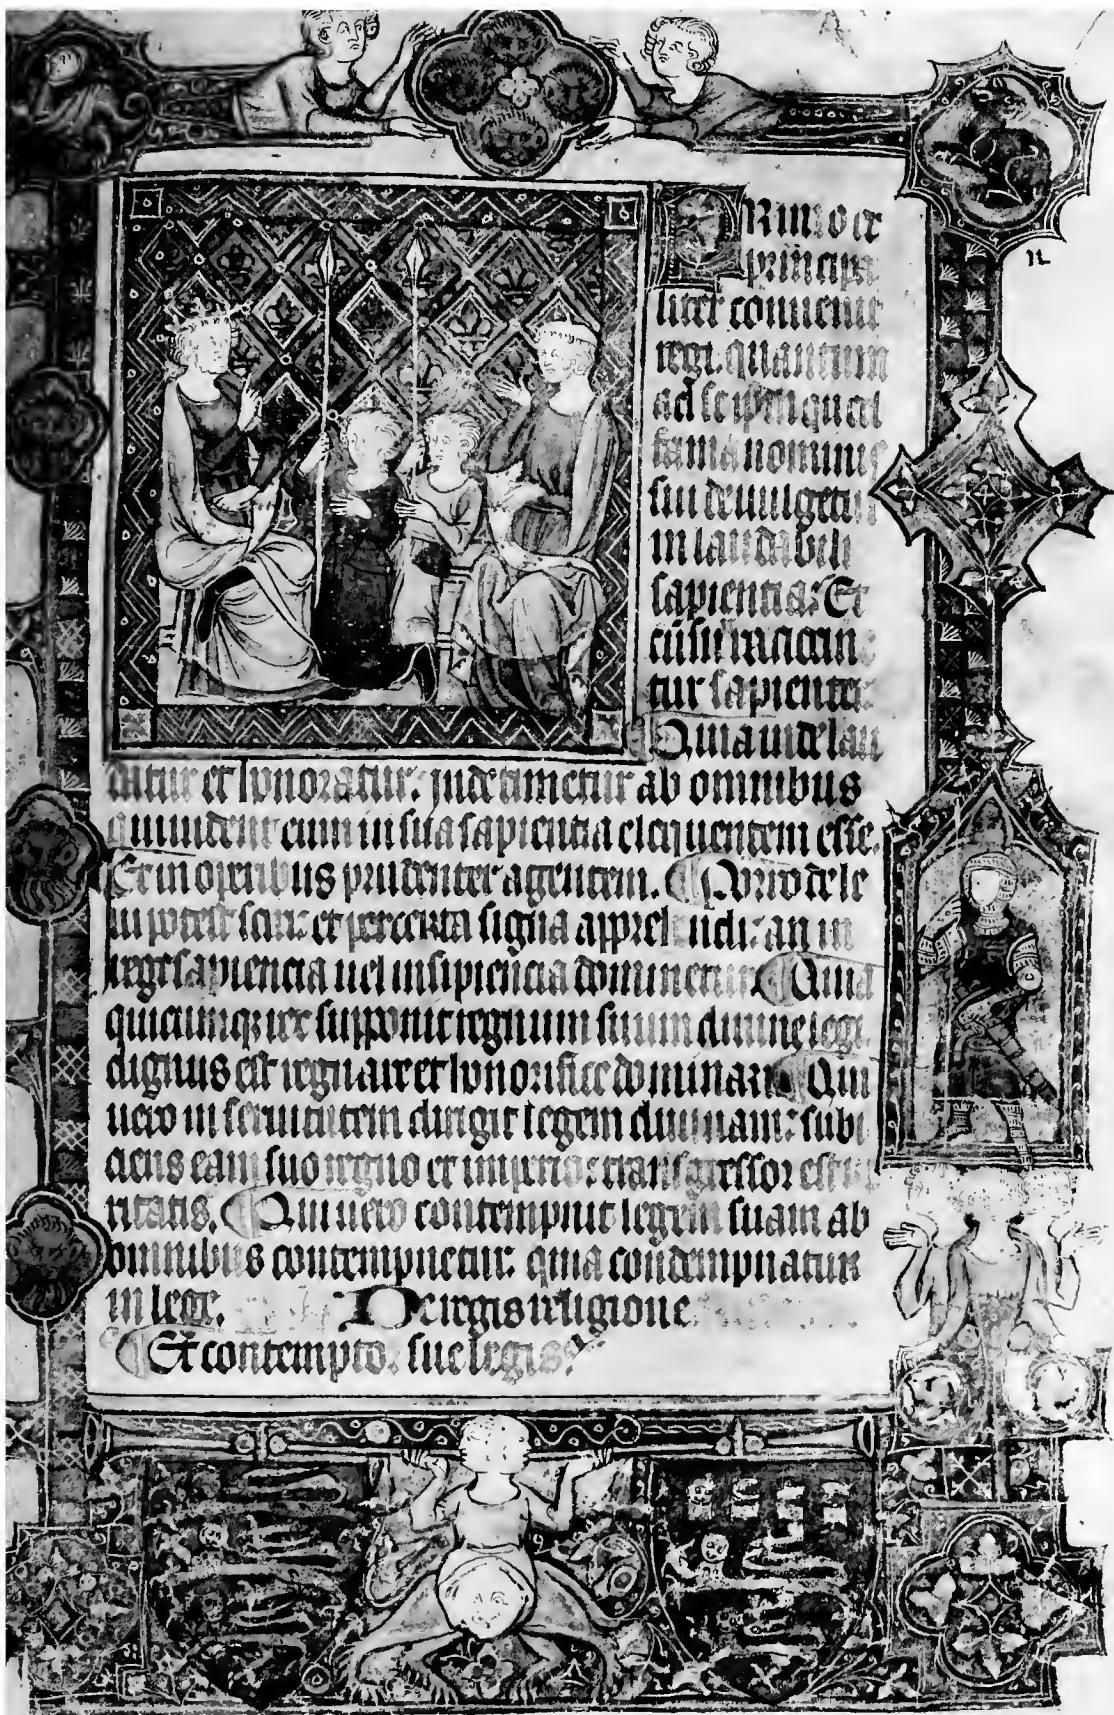 PRimo et
principa
liter conuenit
regi. quantum
ad seip̄m qued
fama nominis
sui deuulgetur
in laudabili
sapientia: Et
cū suis racicin
tur sapienter.
Quia inde lau
datur et honoratur: inde timetur ab omnibus
qui uident eum in sua sapientia elequentem esse.
Et in operibus prudenter agentem. ¶ Porro de le
ui potest sciri: et per certa signa apprehendi: an in
rege sapiencia uel insipiēcia dominetur. ¶ Quia
quicumq; rex supponit regnum suum diuine legi
dignus est regnare et honorifice dominari. ¶ Qui
uero in seruitutem dirigit legem diuinam: subi
ciens eam suo regno et imperio: transgressor est ue
ritatis. ¶ Qui uero contempnit legem suam ab
omnibus contempnetur: quia condempnatur
in lege. De regis religione
¶ Et contempto. sue legis.